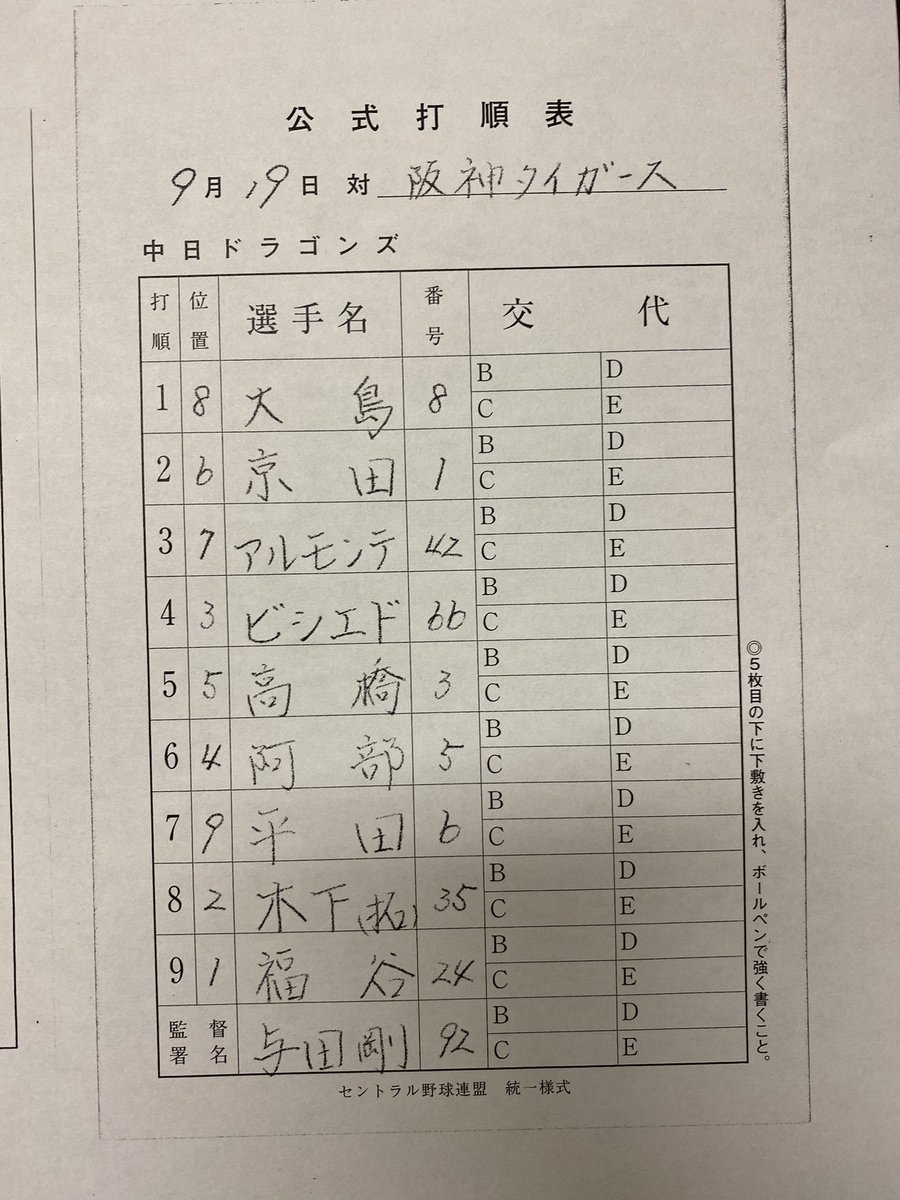 公式打順表
9月19日 対 阪神タイガース
中日ドラゴンズ
打順 位置 選手名 番号 交代
1 8 大島 8 B D
C E
2 6 京田 1 B D
C E
3 7 アルモンテ 42 B D
C E
4 3 ビシエド 66 B D
C E
5 5 高橋 3 B D
C E
6 4 阿部 5 B D
C E
7 9 平田 6 B D
C E
8 2 木下(拓) 35 B D
C E
9 1 福谷 24 B D
C E
監督署名 与田剛 92 B D
C E
セントラル野球連盟 統一様式
◎5枚目の下に下敷きを入れ、ボールペンで強く書くこと。